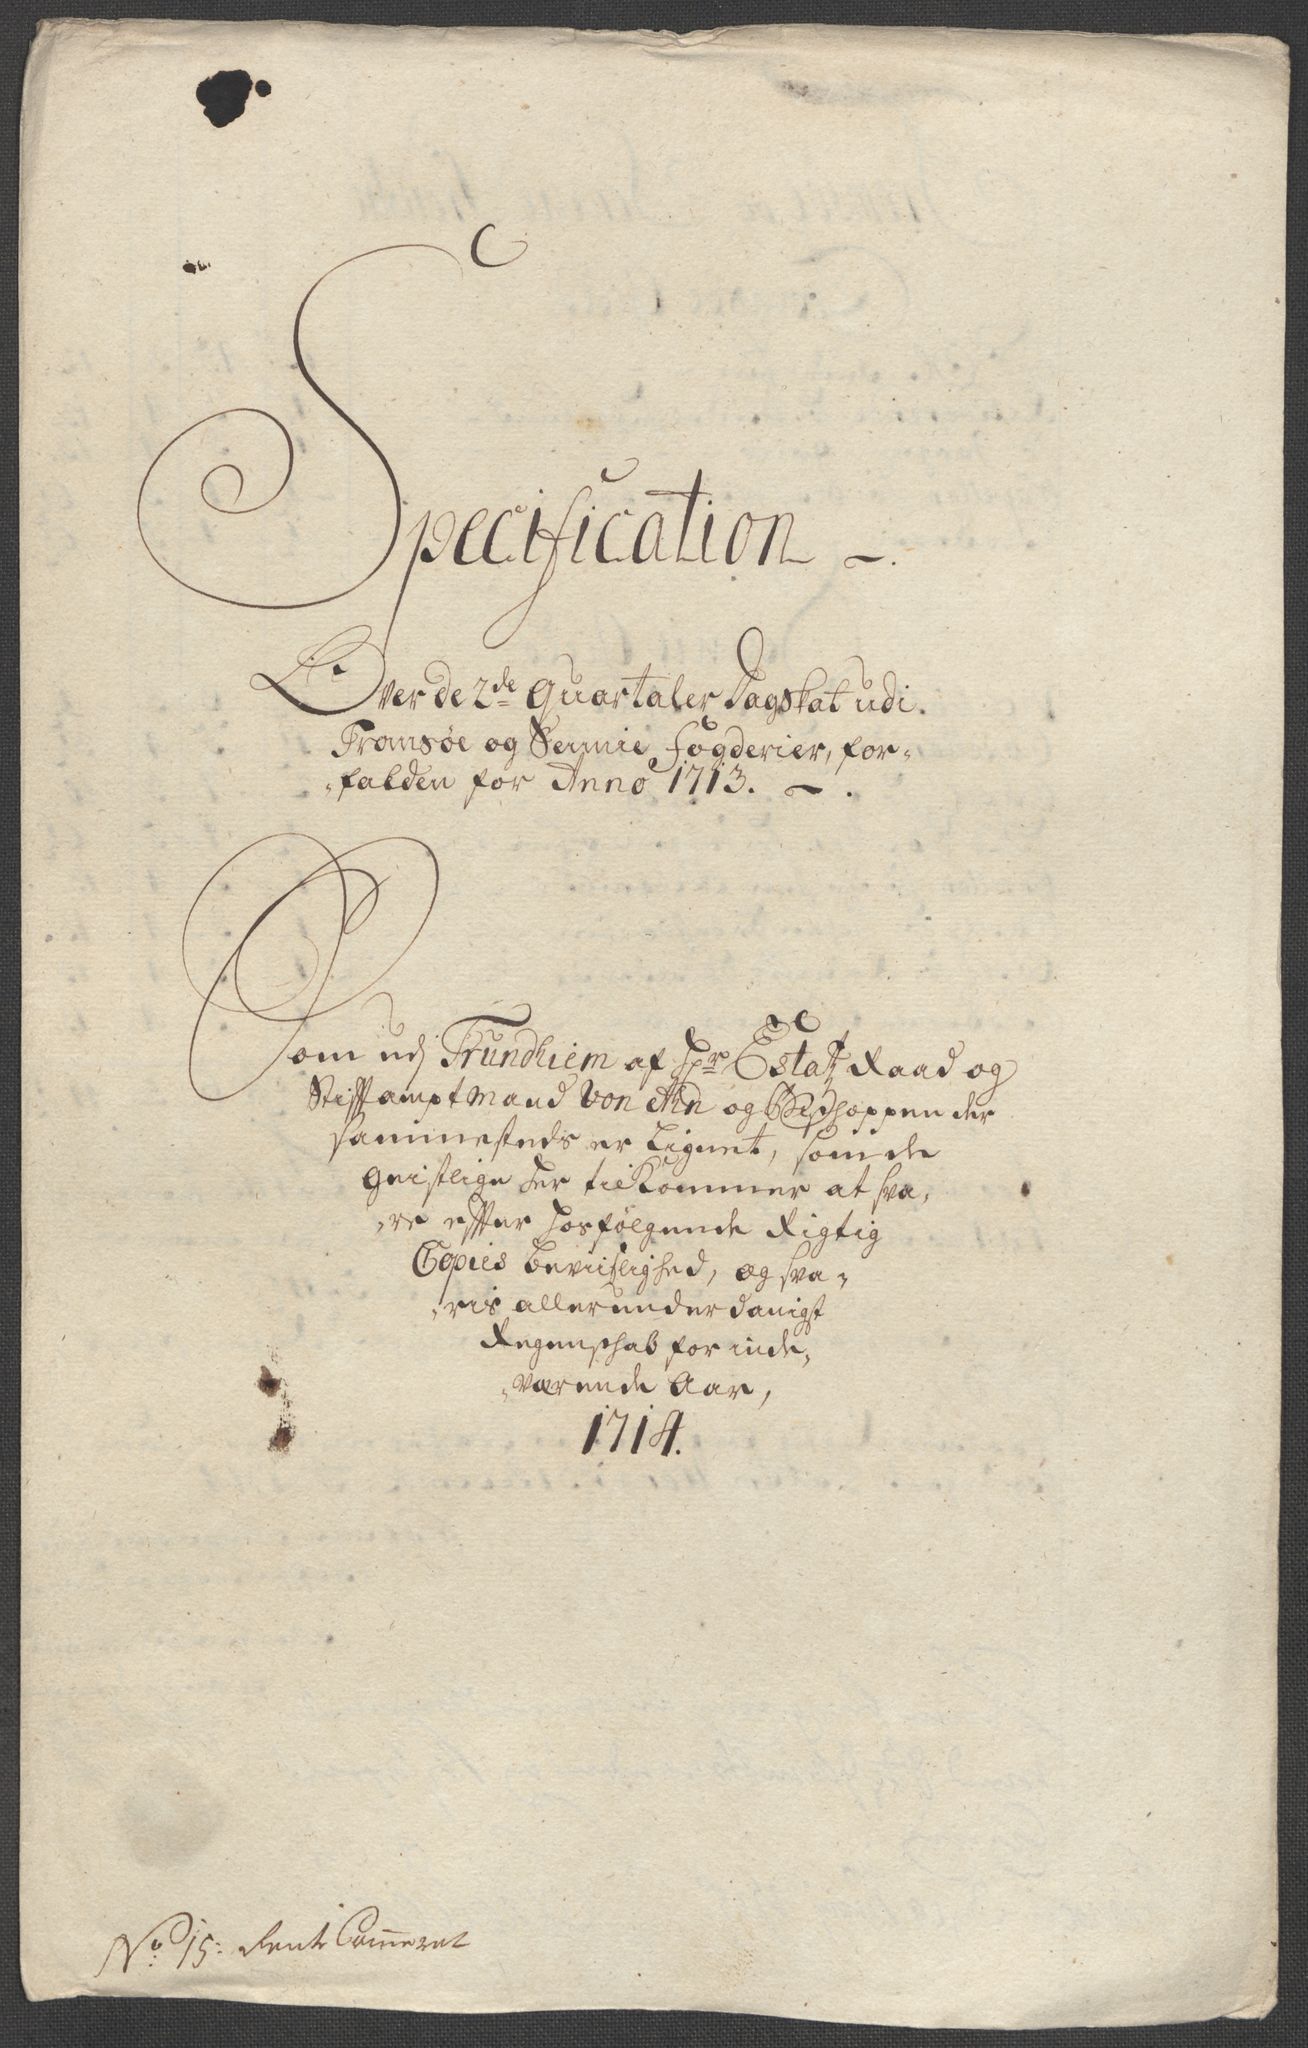 Specification
Over de 2de Quartaler Dagskat udi
Tromsøe og Sennie fogderier, for-
falden for Anno 1713.
Som udj Trundhiem af Hr Estatz Raad og
Stifftamptmand von Ahn og Bischoppen der
sammesteds er Lignet, som de
geistlige der tilkommer at sva-
re effter hosfølgende Rigtig
Copies beviislighed, og sva-
ris allerunderdanigst
Regenschab for inde-
værende Aar,
1714.
No 15: Rente Cammeret